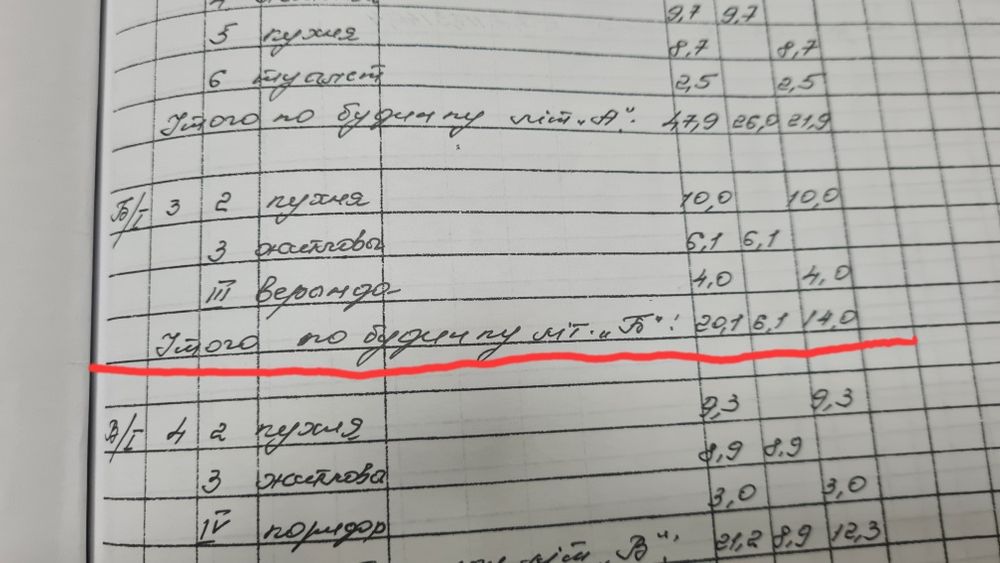 9,7 9,7
5 кухня 8,7 8,7
6 туалет 2,5 2,5
Итого по будинку літ. „А": 47,9 26,0 21,9
Б/I 3 2 кухня 10,0 10,0
3 житлова 6,1 6,1
III веранда 4,0 4,0
Итого по будинку літ. „Б": 20,1 6,1 14,0
В/I 4 2 кухня 9,3 9,3
3 житлова 8,9 8,9
IV коридор 3,0 3,0
літ. „В": 21,2 8,9 12,3